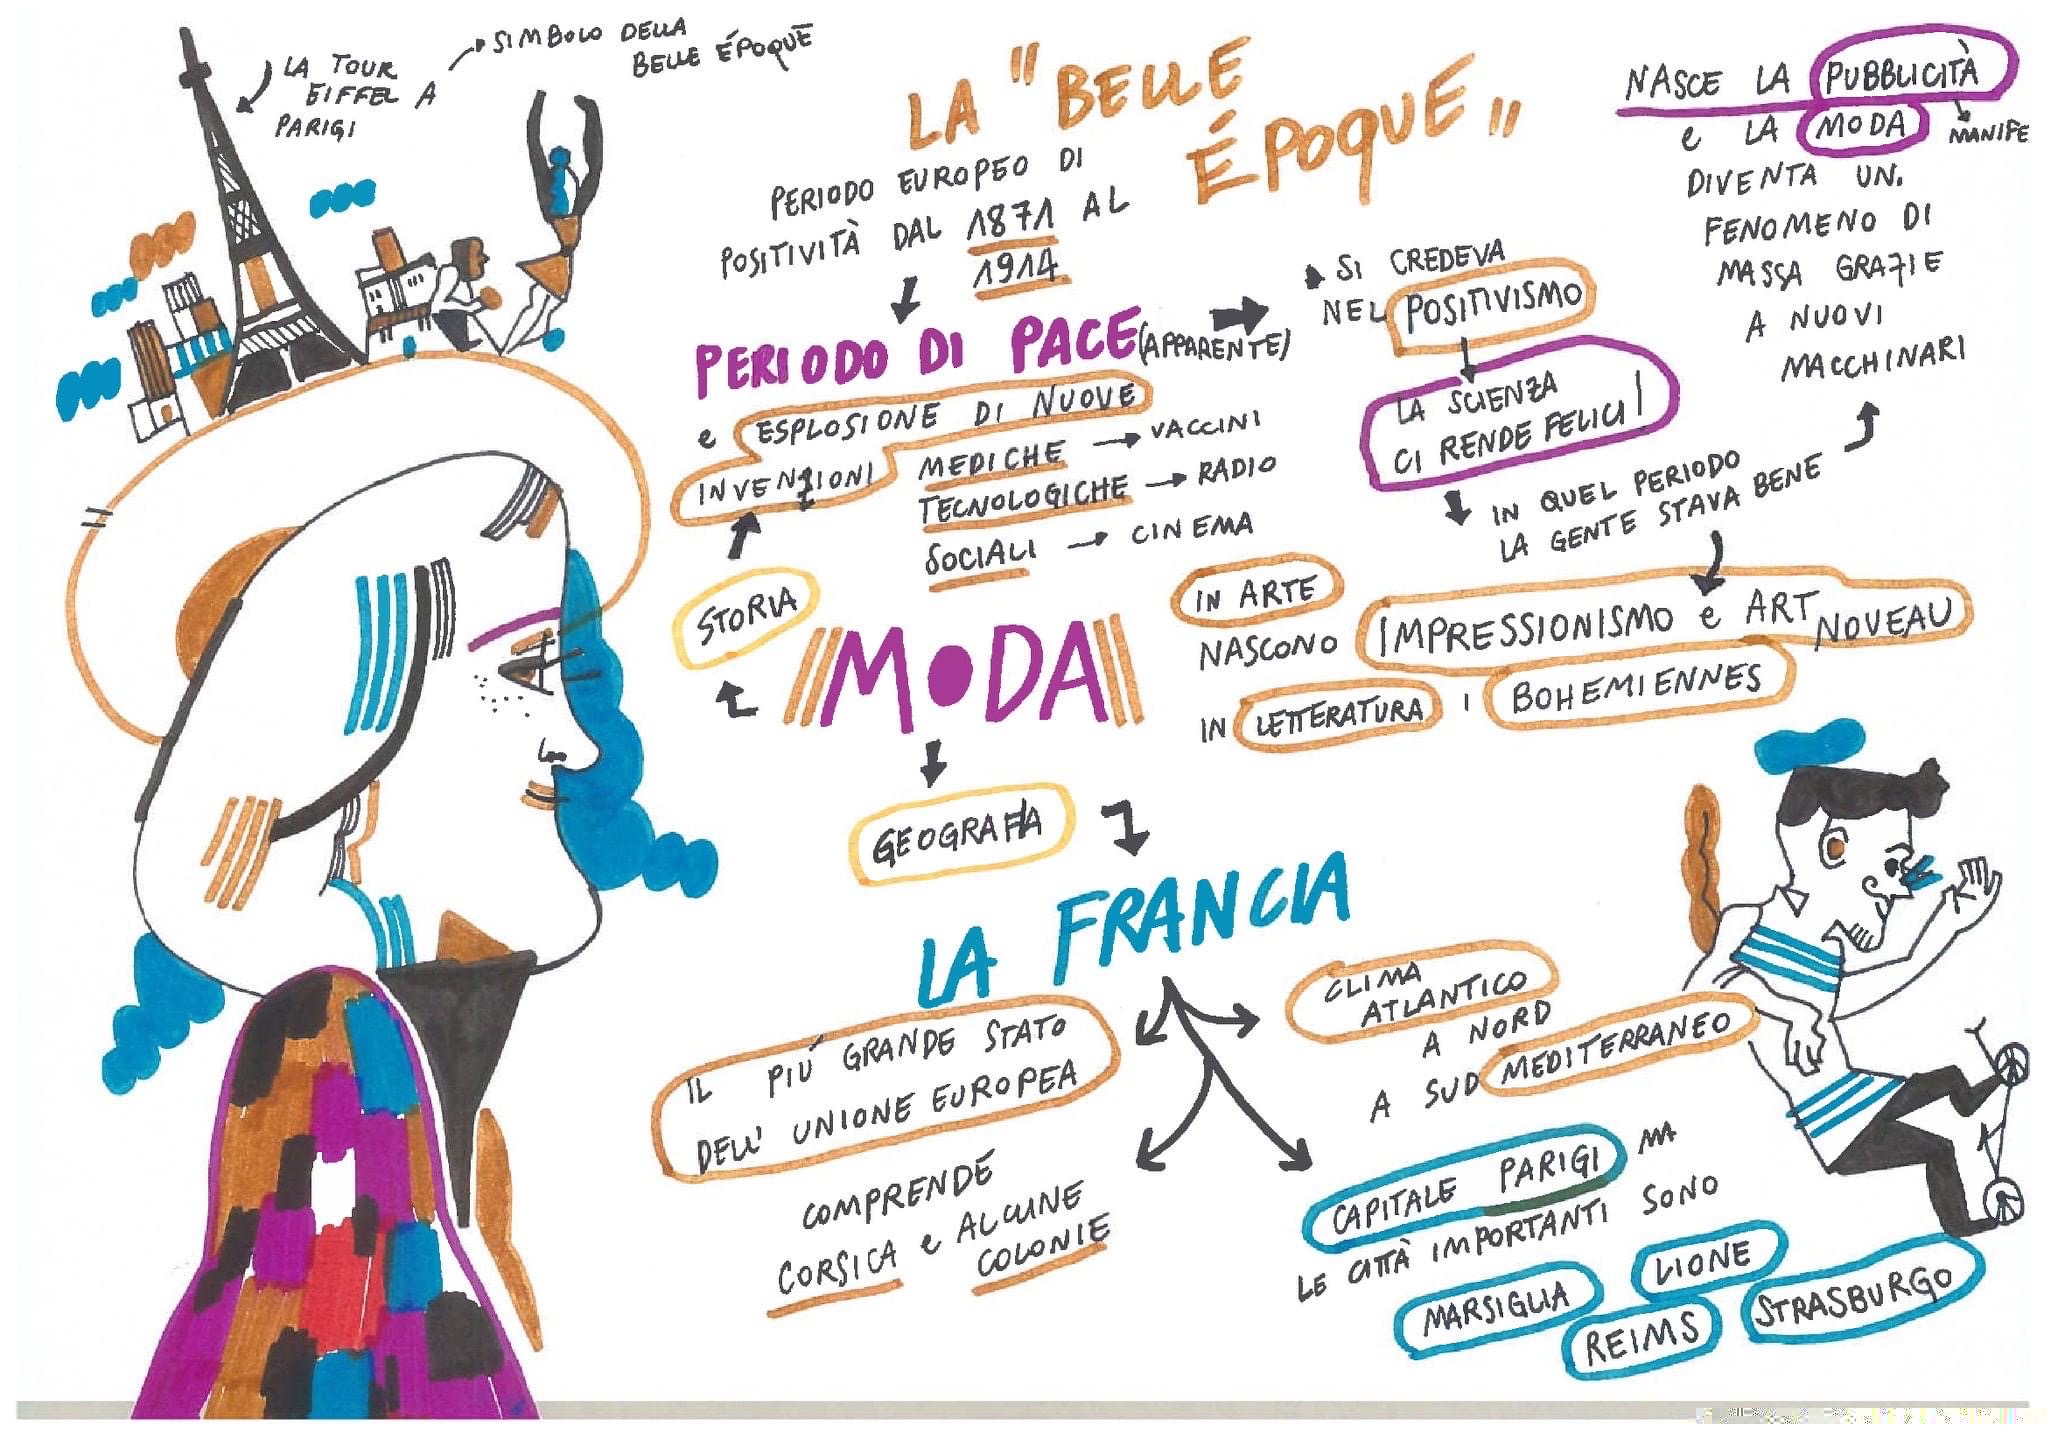 LA TOUR
EIFFEL A
PARIGI
SIMBOLO DELLA
BELLE ÉPOQUE
LA "BELLE
ÉPOQUE"
PERIODO EUROPEO DI
POSITIVITÀ DAL 1871 AL
1914
PERIODO DI PACE (APPARENTE)
e ESPLOSIONE DI NUOVE
INVENZIONI
MEDICHE → VACCINI
TECNOLOGICHE → RADIO
SOCIALI → CINEMA
SI CREDEVA
NEL POSITIVISMO
LA SCIENZA
CI RENDE FELICI!
IN QUEL PERIODO
LA GENTE STAVA BENE
NASCE LA PUBBLICITÀ
MANIFE
e LA MODA
DIVENTA UN
FENOMENO DI
MASSA GRAZIE
A NUOVI
MACCHINARI
STORIA
MODA
IN ARTE
NASCONO IMPRESSIONISMO e ART NOVEAU
IN LETTERATURA I BOHEMIENNES
GEOGRAFIA
LA FRANCIA
IL PIÚ GRANDE STATO
DELL' UNIONE EUROPEA
COMPRENDE
CORSICA e ALCUNE
COLONIE
CLIMA
ATLANTICO
A NORD
A SUD MEDITERRANEO
CAPITALE PARIGI MA
LE CITTÀ IMPORTANTI SONO
MARSIGLIA
LIONE
REIMS
STRASBURGO